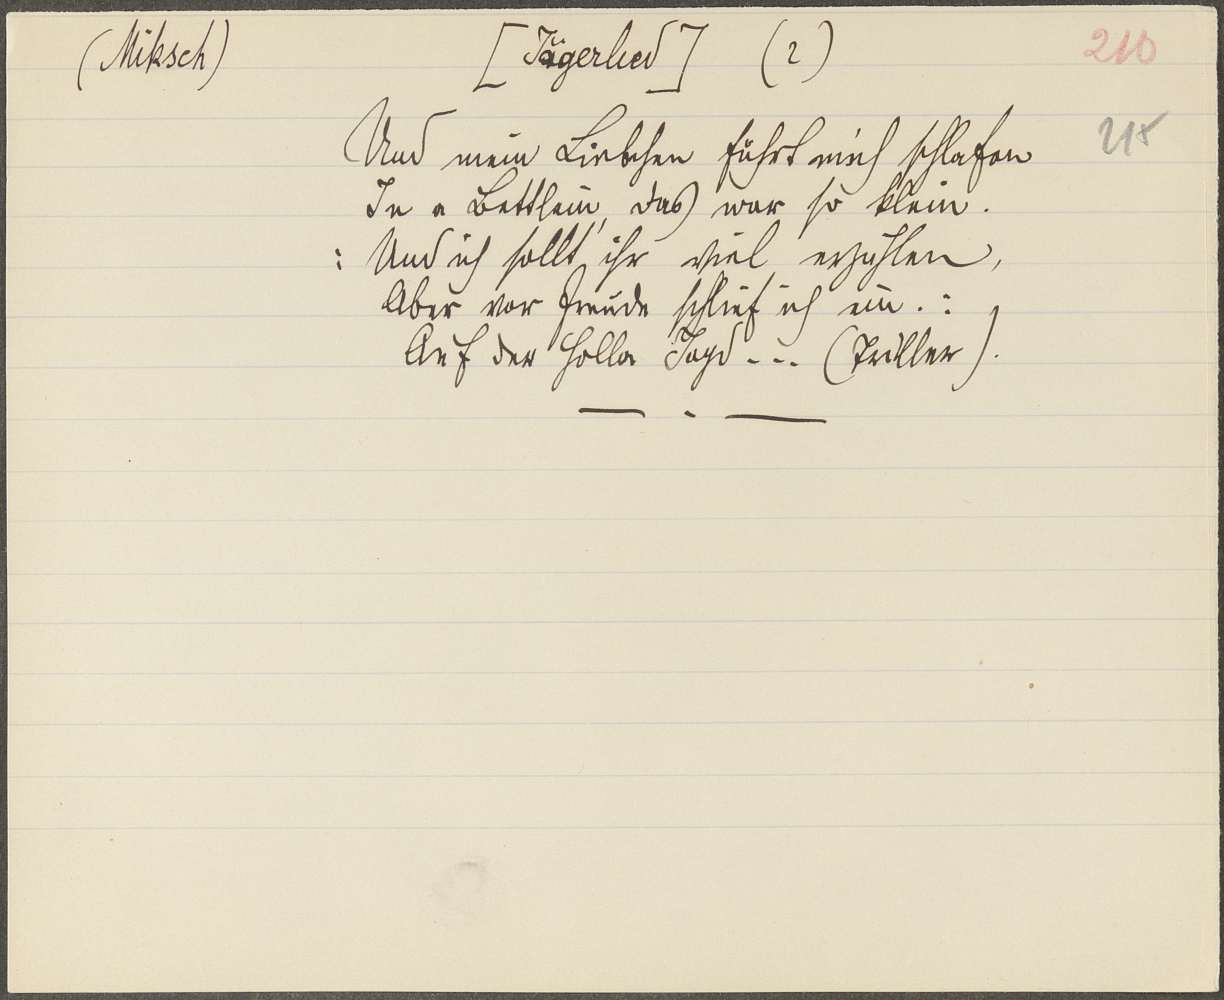 (Miksch) [Jägerlied] (2) 210
Und mein Liebchen führt mich schlafen 215
In a Bettlein, das war so klein.
: Und ich sollt' ihr viel erzählen,
Aber vor Freude schlief ich ein. :
Auf der Holla Jagd - - - (Triller).